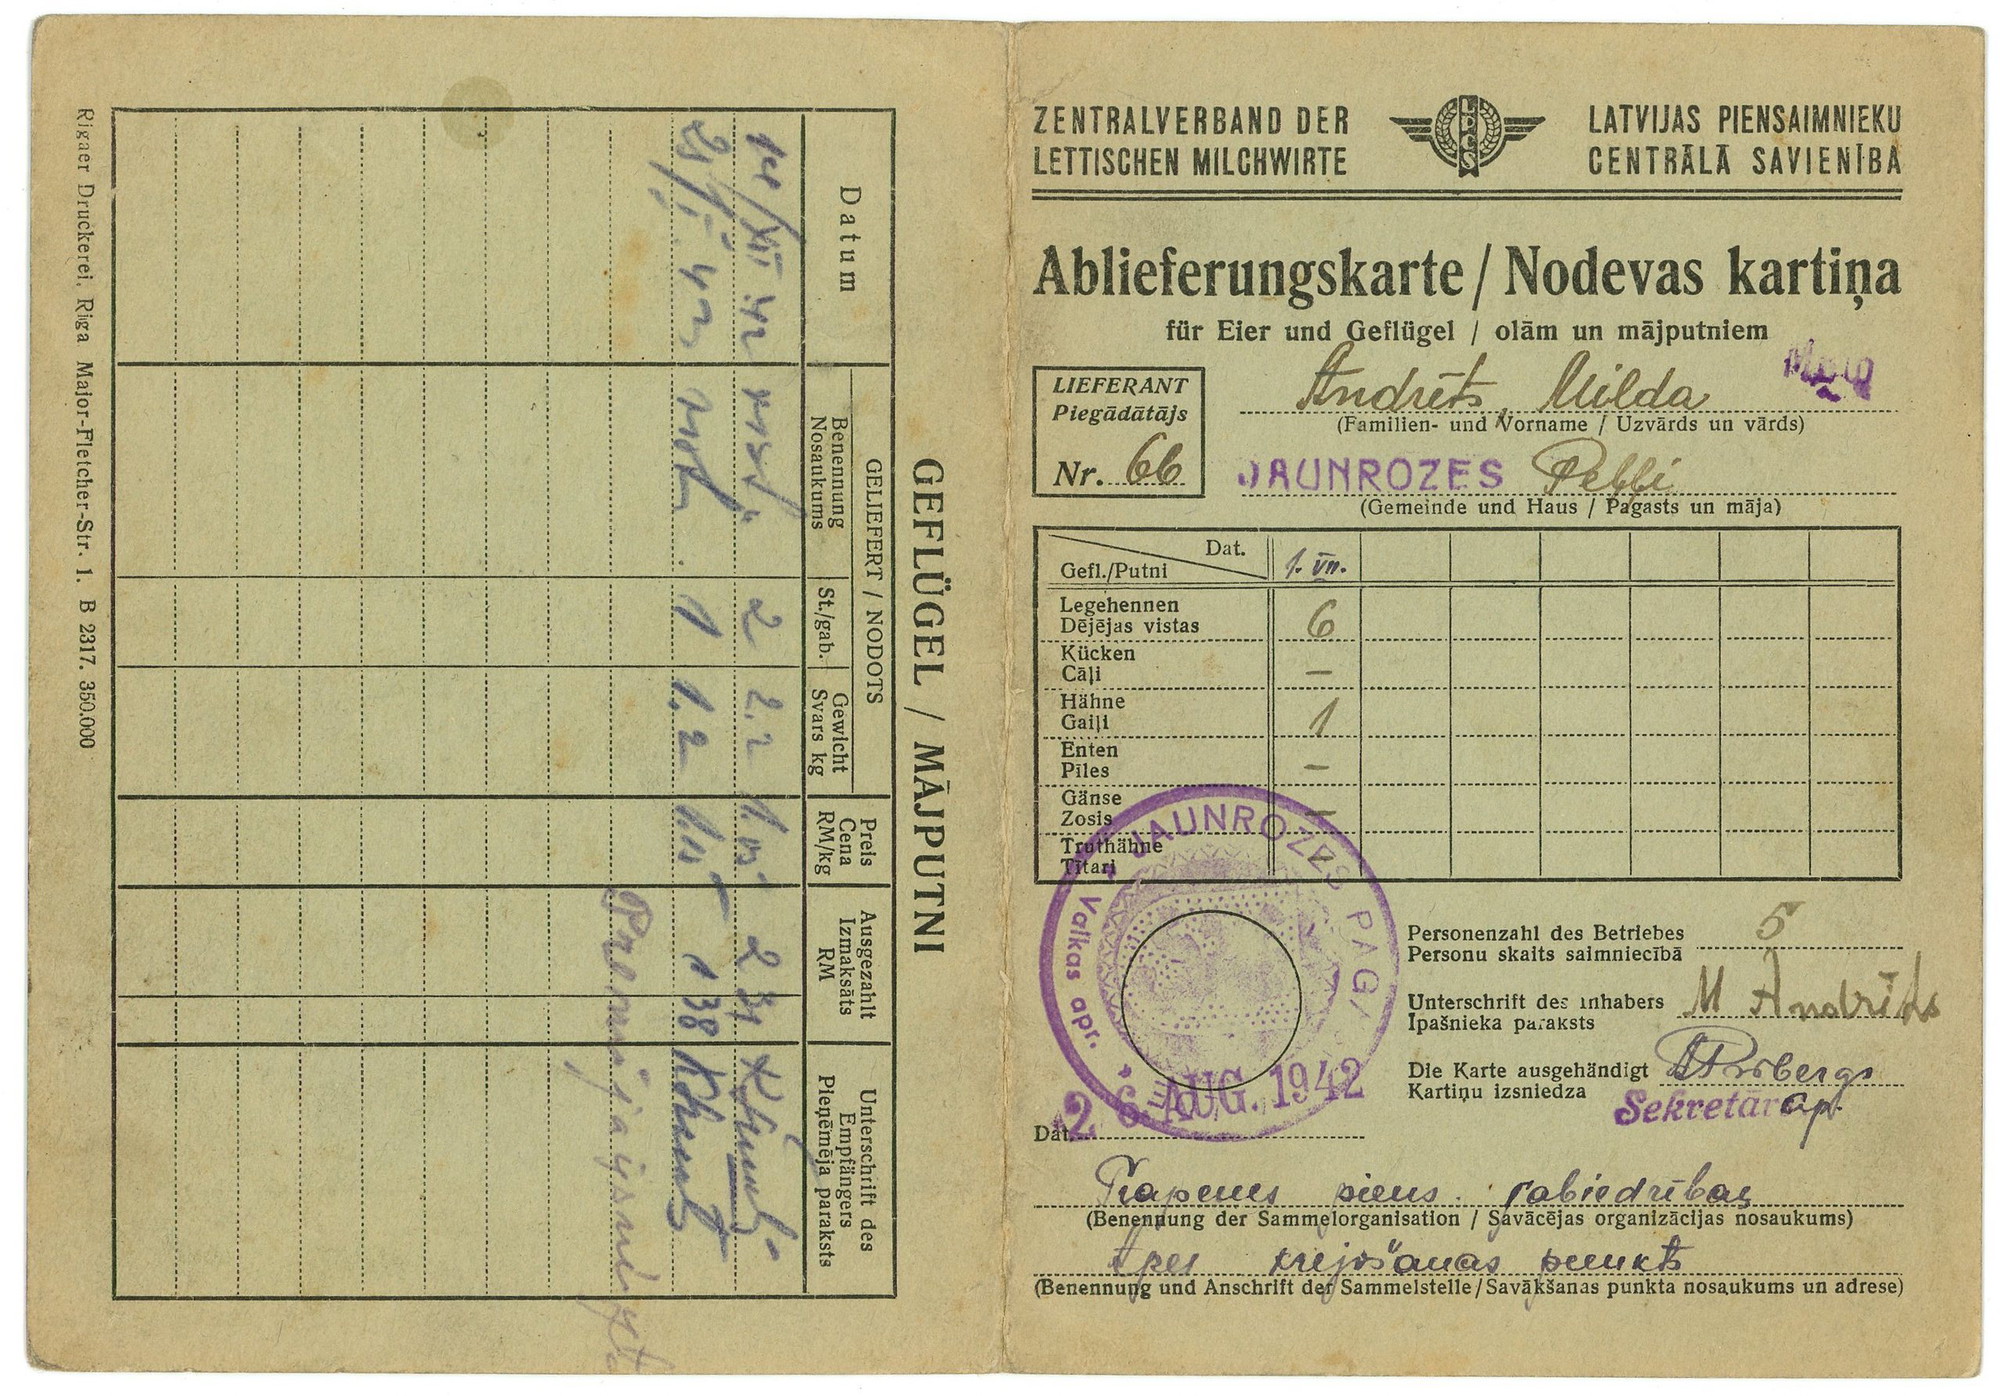 ZENTRALVERBAND DER
LETTISCHEN MILCHWIRTE
LDCS
LATVIJAS PIENSAIMNIEKU
CENTRĀLĀ SAVIENĪBA
Ablieferungskarte / Nodevas kartiņa
für Eier und Geflügel / olām un mājputniem
LIEFERANT
Piegādātājs
Nr. 66
Milda
(Familien- und Vorname / Uzvārds un vārds)
JAUNROZES
(Gemeinde und Haus / Pagasts un māja)
Dat. 1. VII.
Gefl./Putni
Legehennen
Dējējas vistas 6
Kücken
Cāļi —
Hähne
Gaiļi 1
Enten
Pīles —
Gänse
Zosis —
Truthähne
Tītari
JAUNROZES PAG.
Valkas apr.
26. AUG. 1942
Dat.
Personenzahl des Betriebes 5
Personu skaits saimniecībā
Unterschrift des Inhabers M
Īpašnieka paraksts
Die Karte ausgehändigt
Kartiņu izsniedza
Sekretār
Trapenes piens. sabiedrības
(Benennung der Sammelorganisation / Savācējas organizācijas nosaukums)
Apes krejošanas punkts
(Benennung und Anschrift der Sammelstelle / Savākšanas punkta nosaukums un adrese)
GEFLÜGEL / MĀJPUTNI
Datum
GELIEFERT / NODOTS
Benennung
Nosaukums
St./gab.
Gewicht
Svars kg
Preis
Cena
RM/kg
Ausgezahlt
Izmaksāts
RM
Unterschrift des
Empfängers
Pieņēmēja paraksts
2 2.2
1 1.2 1.15 1 38
Premija
Rigaer Druckerei, Riga Major-Fletcher-Str. 1. B 2317. 350.000